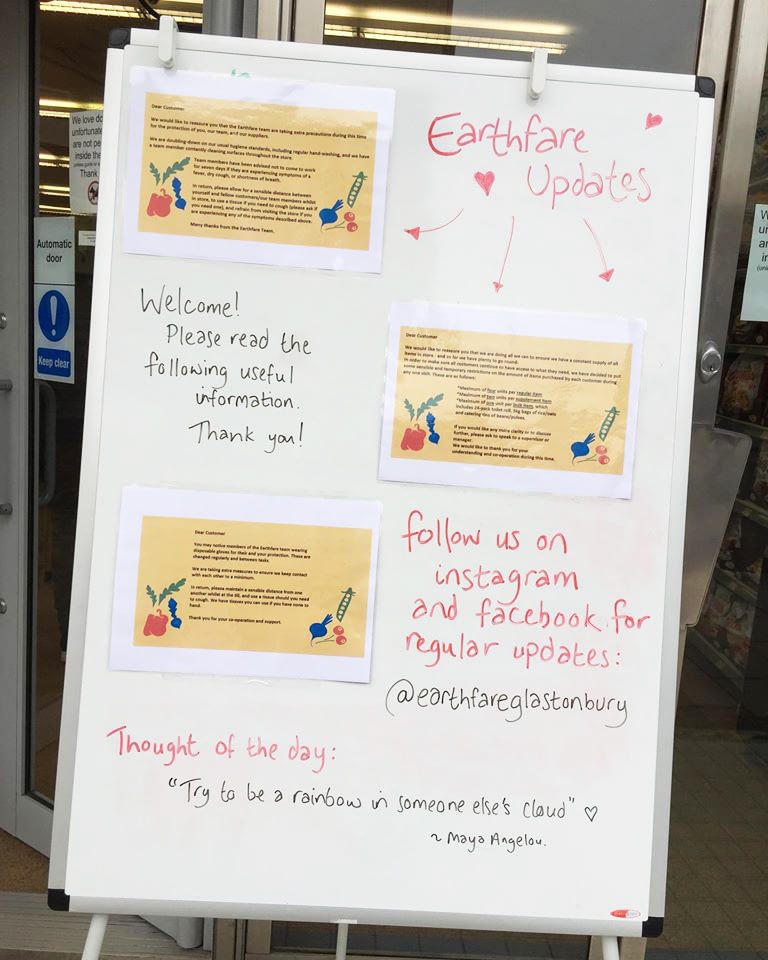 Earthfare
Updates
Dear Customer
We would like to reassure you that the Earthfare team are taking extra precautions during this time
for the protection of you, our team, and our suppliers.
We are doubling-down on our usual hygiene standards, including regular hand-washing, and we have
a team member contantly cleaning surfaces throughout the store.
Team members have been advised not to come to work
for seven days if they are experiencing symptoms of a
fever, dry cough, or shortness of breath.
In return, please allow for a sensible distance between
yourself and fellow customers/our team members whilst
in store, to use a tissue if you need to cough (please ask if
you need one), and refrain from visiting the store if you
are experiencing any of the symptoms described above.
Many thanks from the Earthfare Team.
Welcome!
Please read the
following useful
information.
Thank you!
Dear Customer
We would like to reassure you that we are doing all we can to ensure we have a constant supply of all
items in store - and so far we have plenty to go round.
In order to make sure all customers continue to have access to what they need, we have decided to put
some sensible and temporary restrictions on the amount of items purchased by each customer during
any one visit. These are as follows:
*Maximum of four units per regular item
*Maximum of two units per supplement item
*Maximum of one unit per bulk item, which
includes 24-pack toilet roll, 5kg bags of rice/oats
and catering tins of beans/pulses.
If you would like any more clarity or to discuss
further, please ask to speak to a supervisor or
manager.
We would like to thank you for your
understanding and co-operation during this time.
Dear Customer
You may notice members of the Earthfare team wearing
disposable gloves for their and your protection. These are
changed regularly and between tasks.
We are taking extra measures to ensure we keep contact
with each other to a minimum.
In return, please maintain a sensible distance from one
another whilst at the till, and use a tissue should you need
to cough. We have tissues you can use if you have none to
hand.
Thank you for your co-operation and support.
follow us on
instagram
and facebook for
regular updates:
@earthfareglastonbury
Thought of the day:
"Try to be a rainbow in someone else's cloud" ♡
~ Maya Angelou.
Automatic
door
Keep clear
We love do
unfortunate
are not pe
inside the
Thank